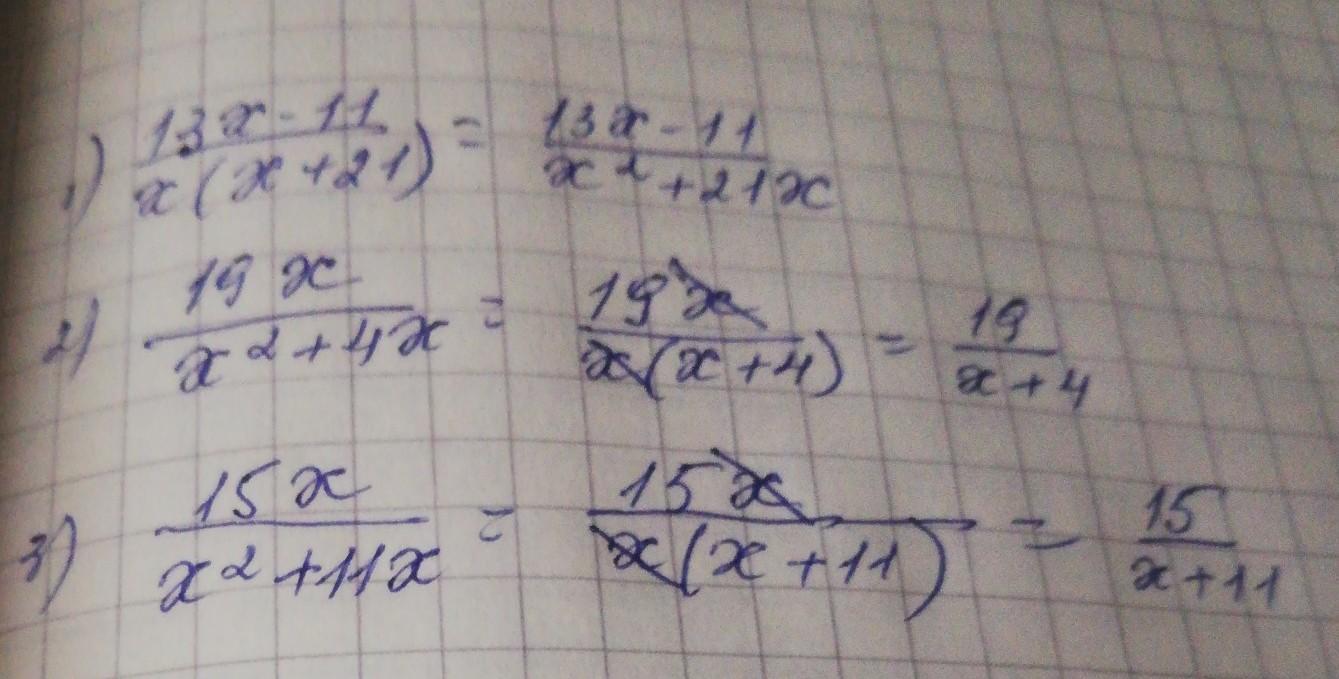 1) \frac{13x-11}{x(x+21)} = \frac{13x-11}{x^2+21x}
2) \frac{19x}{x^2+4x} = \frac{19x}{x(x+4)} = \frac{19}{x+4}
3) \frac{15x}{x^2+11x} = \frac{15x}{x(x+11)} = \frac{15}{x+11}